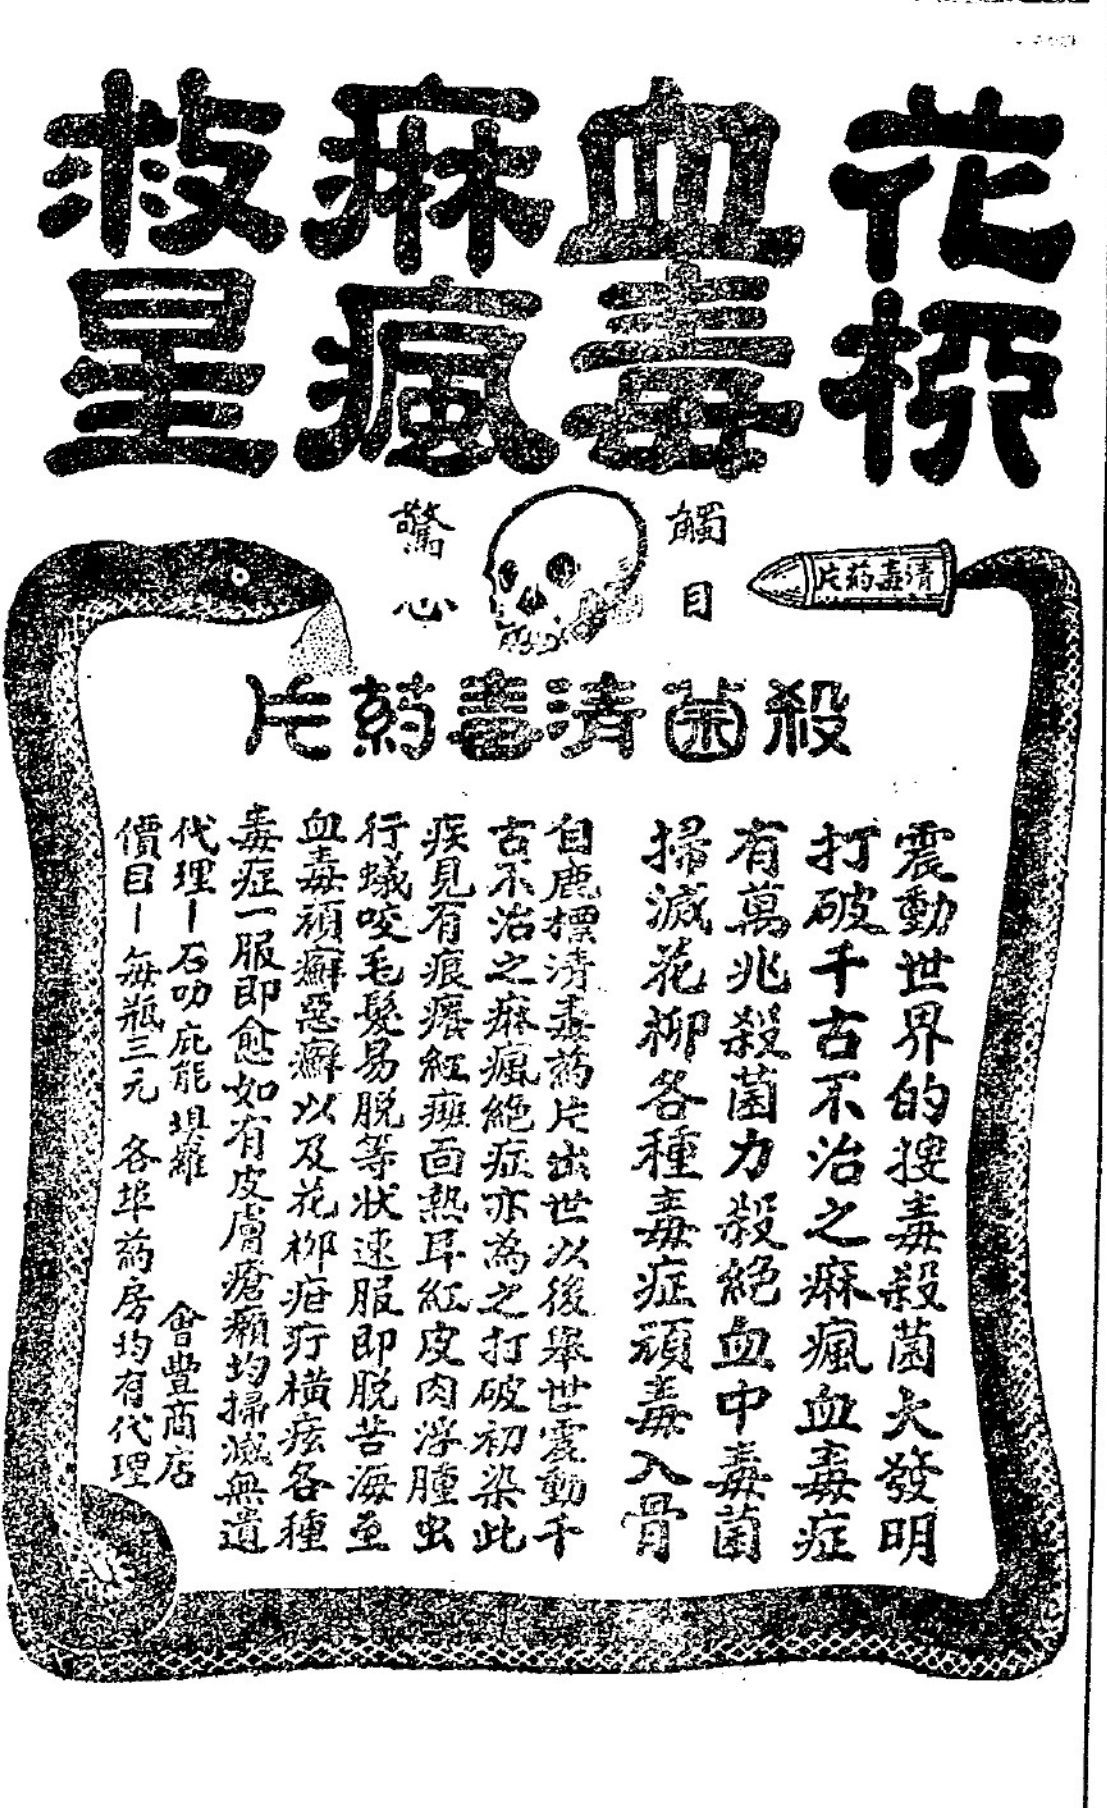 花柳
血毒
麻瘋
救星
觸目
驚心
清毒葯片
殺菌清毒葯片
震動世界的搜毒殺菌大發明
打破千古不治之麻瘋血毒症
有萬兆殺菌力殺絕血中毒菌
掃滅花柳各種毒症頑毒入骨
自鹿標清毒葯片出世以後舉世震動千
古不治之麻瘋絕症亦為之打破初染此
疾見有痕癢紅斑面熱耳紅皮肉浮腫虫
行蟻咬毛髮易脱等状速服即脱苦海至
血毒頑癬惡癬以及花柳疳疔橫痃各種
毒症一服即愈如有皮膚瘡癩均掃滅無遺
代理—石叻庇能坦羅 會豐商店
價目—每瓶三元 各埠葯房均有代理